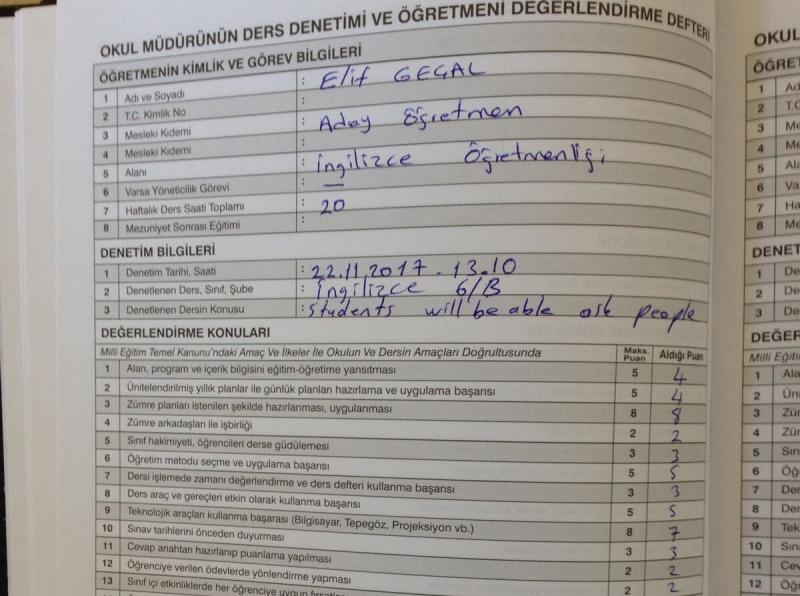 OKUL MÜDÜRÜNÜN DERS DENETİMİ VE ÖĞRETMENİ DEĞERLENDİRME DEFTERİ
ÖĞRETMENİN KİMLİK VE GÖREV BİLGİLERİ
1 Adı ve Soyadı : Elif GEÇAL
2 T.C. Kimlik No :
3 Mesleki Kıdemi : Aday Öğretmen
4 Mesleki Kıdemi :
5 Alanı : İngilizce Öğretmenliği
6 Varsa Yöneticilik Görevi : —
7 Haftalık Ders Saati Toplamı : 20
8 Mezuniyet Sonrası Eğitimi :
DENETİM BİLGİLERİ
1 Denetim Tarihi, Saati : 22.11.2017 - 13.10
2 Denetlenen Ders, Sınıf, Şube : İngilizce 6/B
3 Denetlenen Dersin Konusu : Students will be able ask people
DEĞERLENDİRME KONULARI
Milli Eğitim Temel Kanunu'ndaki Amaç Ve İlkeler İle Okulun Ve Dersin Amaçları Doğrultusunda Maks. Puan Aldığı Puan
1 Alan, program ve içerik bilgisini eğitim-öğretime yansıtması 5 4
2 Ünitelendirilmiş yıllık planlar ile günlük planları hazırlama ve uygulama başarısı 5 4
3 Zümre planları istenilen şekilde hazırlanması, uygulanması 8 8
4 Zümre arkadaşları ile işbirliği 2 2
5 Sınıf hakimiyeti, öğrencileri derse güdülemesi 3 3
6 Öğretim metodu seçme ve uygulama başarısı 5 5
7 Dersi işlemede zamanı değerlendirme ve ders defteri kullanma başarısı 3 3
8 Ders araç ve gereçleri etkin olarak kullanma başarısı 5 5
9 Teknolojik araçları kullanma başarası (Bilgisayar, Tepegöz, Projeksiyon vb.) 8 7
10 Sınav tarihlerini önceden duyurması 3 3
11 Cevap anahtarı hazırlanıp puanlama yapılması 2 2
12 Öğrenciye verilen ödevlerde yönlendirme yapması 2 2
13 Sınıf içi etkinliklerde her öğrenciye uygun
OKUL
1
2
3
4
5
6
7
8
1
2
3
1
2
3
4
5
6
7
8
9
10
11
12